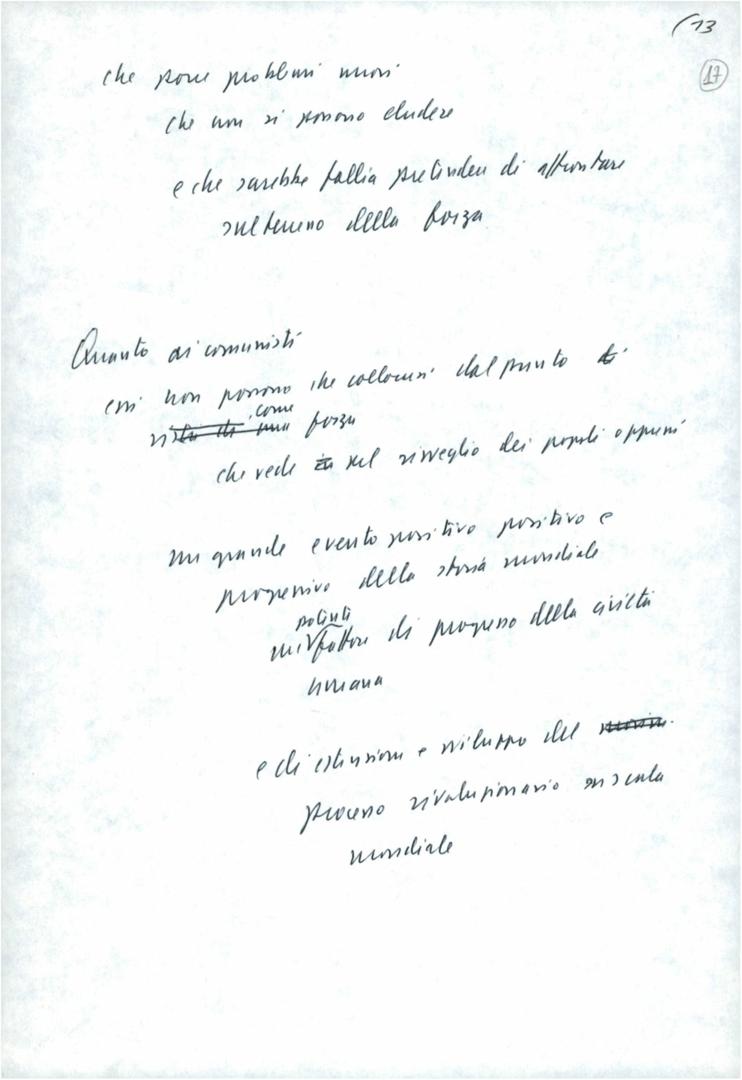 (13
17
che pone problemi nuovi
che non si possono eludere
e che sarebbe follia pretendere di affrontare
sul terreno della forza
Quanto ai comunisti
essi non possono che collocarsi dal punto di
vista di una come forza
che vede in nel risveglio dei popoli oppressi
un grande evento positivo positivo e
progressivo della storia mondiale
potente
un fattore di progresso della civiltà
umana
e di estensione e sviluppo del
processo rivoluzionario su scala
mondiale